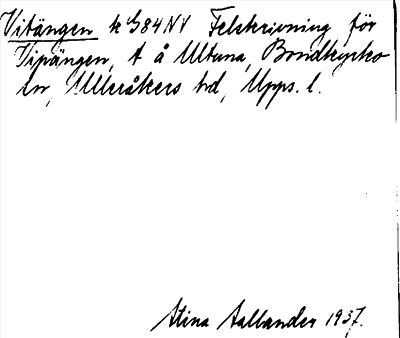 Vitängen k G84NV Felskrivning för
Vipängen, t å Ultuna, Bondkyrko
sn, Ulleråkers hd, Upps. l.
Stina Aallander 1937.